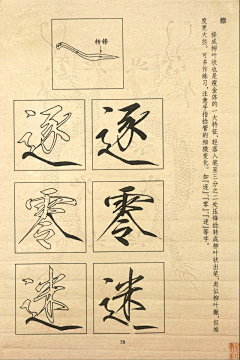 捺
捺成柳叶状也是瘦金体的一大特征，轻落入笔至三分之二处压锋捻转成柳叶状出笔，类似柳叶撇，但难
度更大些。可多作练习，注意手指捻管的细微变化。如『逐』、『零』、『迷』等字。
转锋
逐 逐
零 零
迷 迷
58